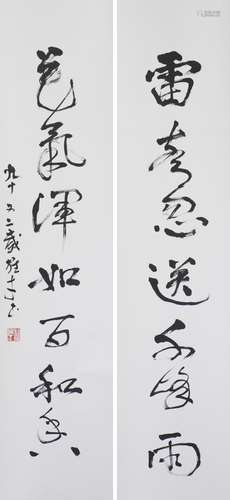 雷声忽送千峰雨
花气浑如百和香
九十又二岁